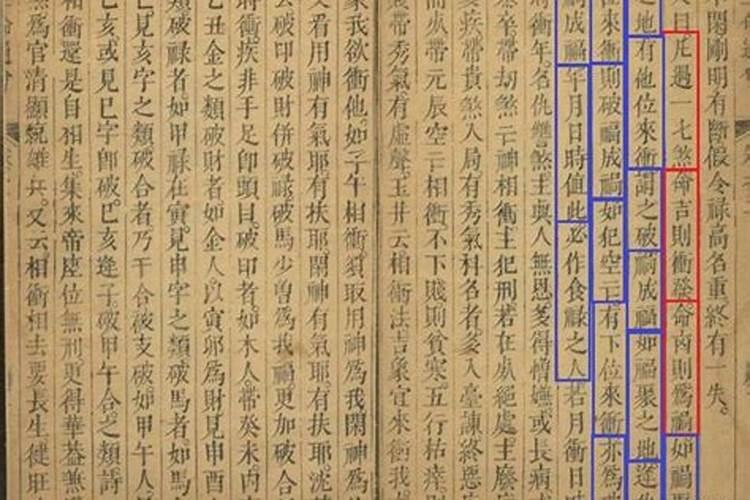 中閑剛明有斷假令祿高名重終有一失
曰凡遇一七煞命吉則衝發命凶則爲禍如禍
之地有他位來衝謂之破禍成福如福聚之地逢
位來衝則破福成禍如犯空亡有下位來衝亦爲
禍成福年月日時值此必作食祿之人若月衝日
將衝年名仇讎煞主與人無恩多得憎嫌或長病
帶劫煞亡神相衝主犯刑若在處絕處主
疾帶貴煞入局有秀氣科名者多入臺諫終惡
而亦帶元辰空亡相衝不下賤則貧寒五行枯瘁則
帶秀氣有虛聲玉井云相衝法吉象宜來衝我
象我欲衝他如子午相衝須取用神爲我閑神爲
又看用神有氣耶有扶耶閑神有氣耶有扶耶
去破印破財併破祿破馬少曽爲我福更加破合
時衝疾非手足卽頭目破印者如木人帶癸未內
乙丑金之類破財者如金人以寅卯爲財見申酉
類破祿者如甲祿在寅見申字之類破馬者如馬
巳見亥字之類破合者乃干合被支破如甲午人
七亥或見巳字卽破巳亥逢子破甲午合之類詩
相衝還是自相生集來帝座位無刑更得華葢兼
爲官清顯 又云相衝相去要長生